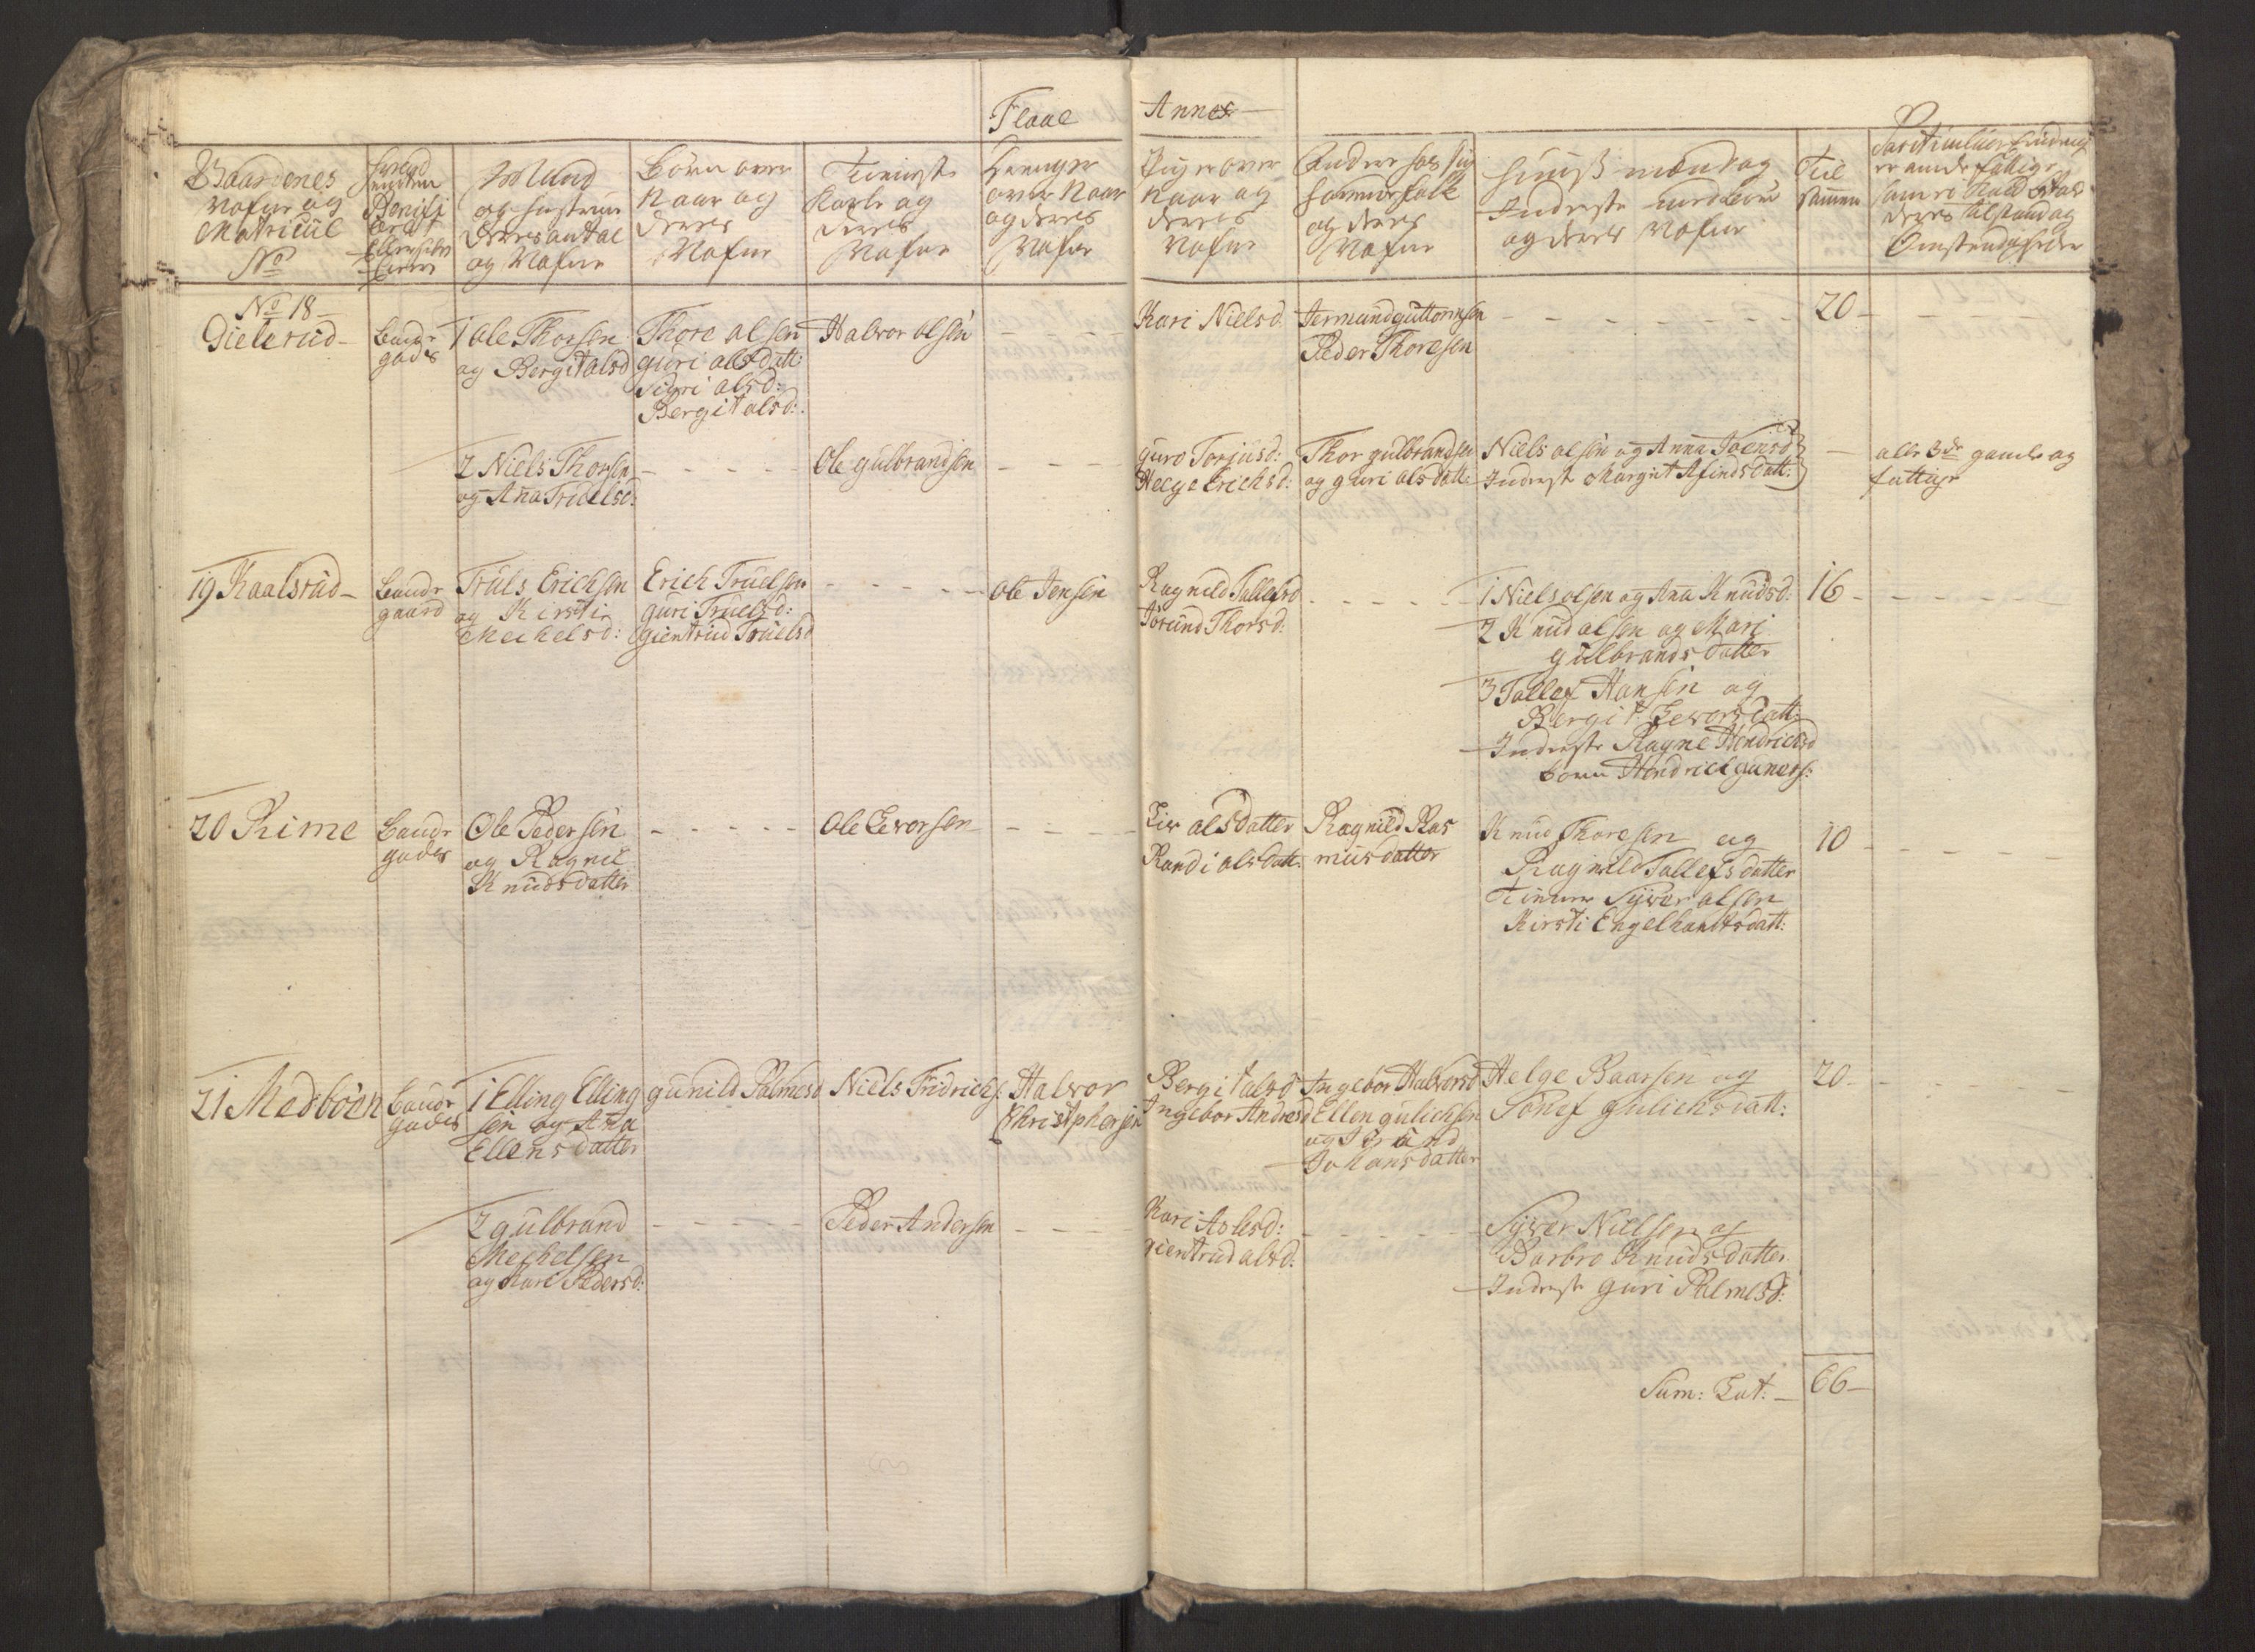 Flaae Annex
Gaardenes
Nafne og
Matricul
No
Benifi
Mand
og Hustrue
deres antal
og Nafne
Børn over
Naar og
deres
Nafne
Tieniste
Karle og
deres
Nafne
Drenge
over Naar
og deres
Nafne
Piger over
Naar og
deres
Nafne
Andre hos sig
og deres
Nafne
Huuß mænd og
Inderste med børn
og deres Nafne
Til
sammen
deres tilstand og
Omstendigheder
No 18
Gielsrud
Bunde
gods
1 ole Thorsen
og Bergit olsd
Thore olsen
guri olsdatt:
Sigri olsd:
Bergit olsd:
Halvor olsen
Kari Nielsd
Jermund guttormsen
Peder Thoresen
20
2 Niels Thorsen
og Ana Truelsd:
Ole gulbrandsen
guro Torjusd:
Helge Erichsd:
Thor gulbrandsen
og guri olsdatt:
Niels olsen og Anna Joensd
Inderste Margit Afindsdatt:
alle 3de gamle og
fattige
19 Kaalsrud
Bunde
gaard
Truls Erichsen
og Kirsti
Mechelsd:
Erich Truelsen
guri Truelsd:
gientrud Truelsd
ole Jensen
Ragnild Tollefsd
Jørund Thorsd:
1 Niels olsen og Ana Knudsd:
2 Knud olsen og Mari
gulbrands datter
3 Tollef Hansen og
Bergit Eversdatt:
Inderste Ragne Hendrichsd
børn Hendrich guners:
16
20 Rime
Bunde
gods
Ole Pedersen
og Ragnil
Knudsdatter
Ole Eversen
Liv olsdatter
Randi olsdatt:
Ragnild Ras
musdatter
Knud Thoresen og
Ragnild Tollefsdatter
Tienere Syver olsen
Kirsti Engelhartsdatt:
10
21 Medböen
Bunde
gods
1 Elling Elling
sen og Ana
Ellensdatter
gunild Palmesd
Niels Fridrichs:
Halvor
Christphersen
Bergit olsd
Ingebor Andresd
Ingebor Halvorsd
Ellen gulichsen
og Jörand
Johansdatter
Helge Baarsen og
Sönef gulichsdatt:
20
2 gulbrand
Mechelsen
og Kari Pedersd:
Peder Andersen
Kari Aslesd:
gientrud olsd:
Syver Nielsen og
Barbro Knudsdatter
Inderste guri Palmesd:
Sum: Lat:
66